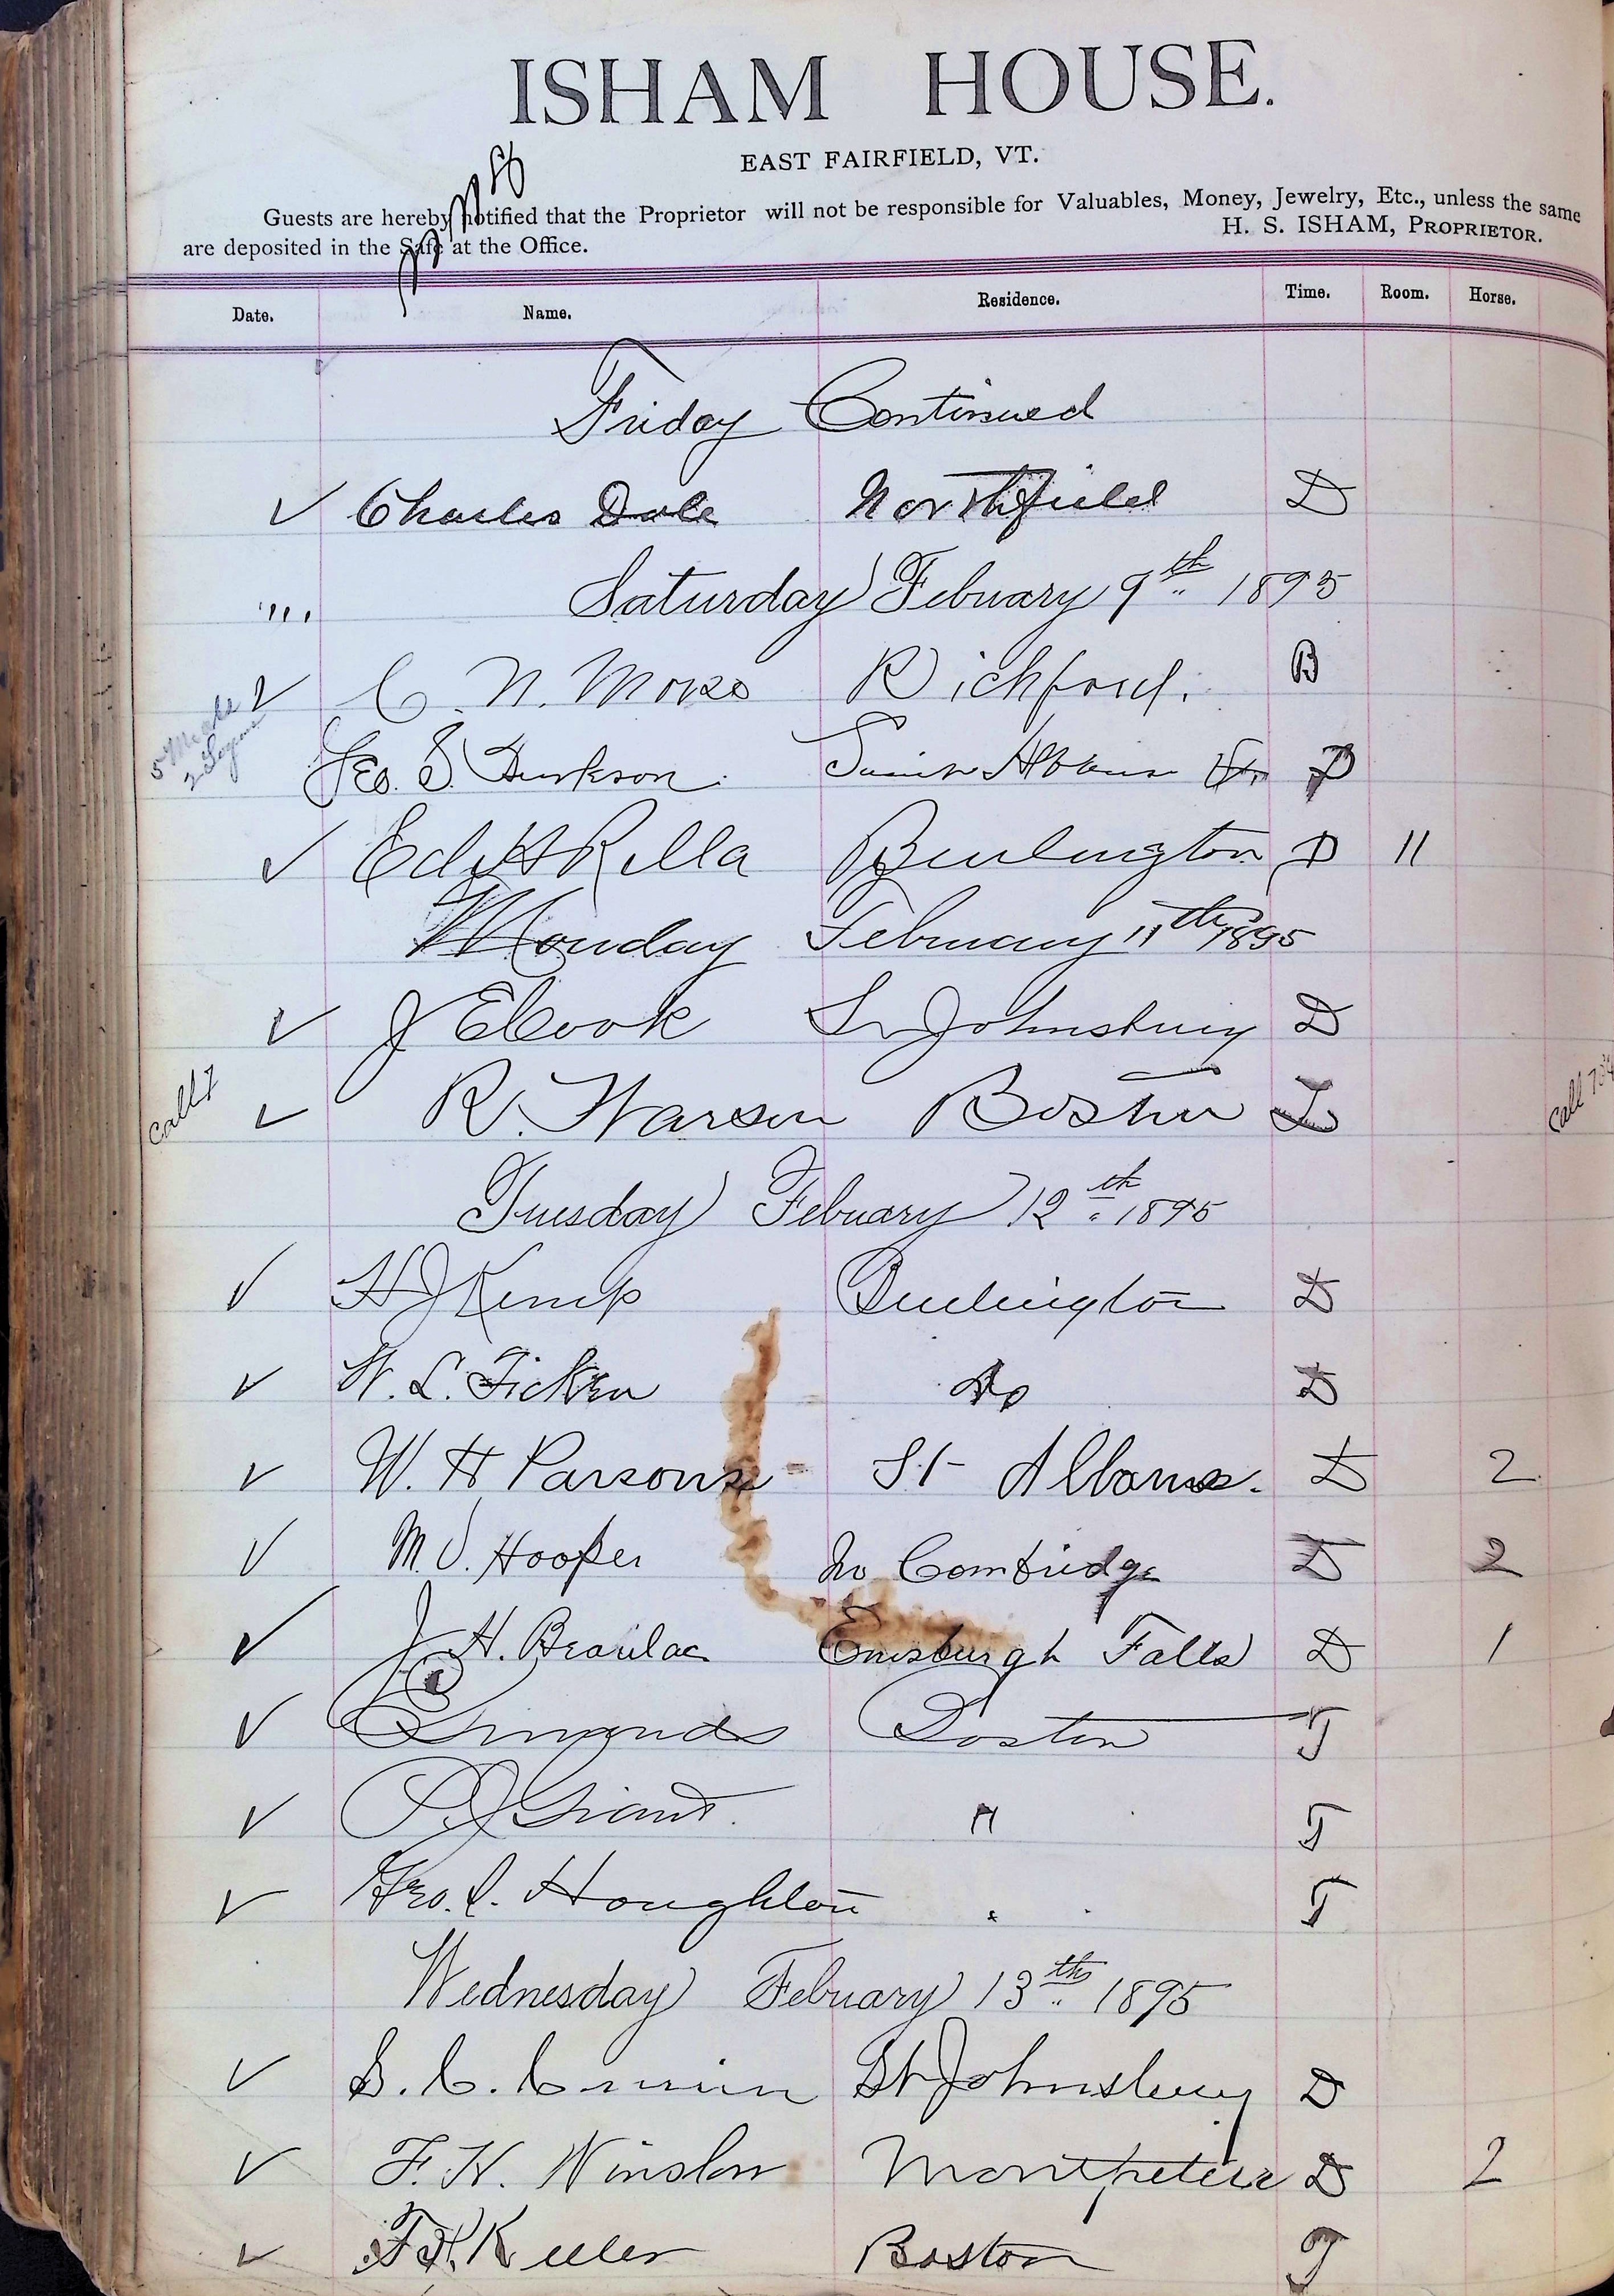 ISHAM HOUSE.
EAST FAIRFIELD, VT.
Guests are hereby notified that the Proprietor will not be responsible for Valuables, Money, Jewelry, Etc., unless the same
are deposited in the Safe at the Office.
H. S. ISHAM, PROPRIETOR.
Date. Name. Residence. Time. Room. Horse.
Friday Continued
✓ Charles Dale Northfield D
Saturday Febuary 9th 1895
✓ C. N. Morse Richford. B
Geo. S. Saint Albans Vt. D
✓ Ed H Burlington D 11
Monday February 11th 1895
✓ J E Cook St Johnsbury D
Call 7 ✓ R. Boston Call
Tuesday Febuary 12th 1895
✓ H J Kemp Burlington D
✓ W. L. Do D
✓ W. H Parsons St Albans. D 2
✓ M. V. Hooper No Cambridge D 2
✓ J. H. Enosburgh Falls D 1
✓ Simonds Boston T
✓ P. J Grant. " T
✓ Geo. Houghton " T
Wednesday Febuary 13th 1895
✓ St Johnsbury D
✓ F. H. Winslow Montpelier D 2
✓ Boston T